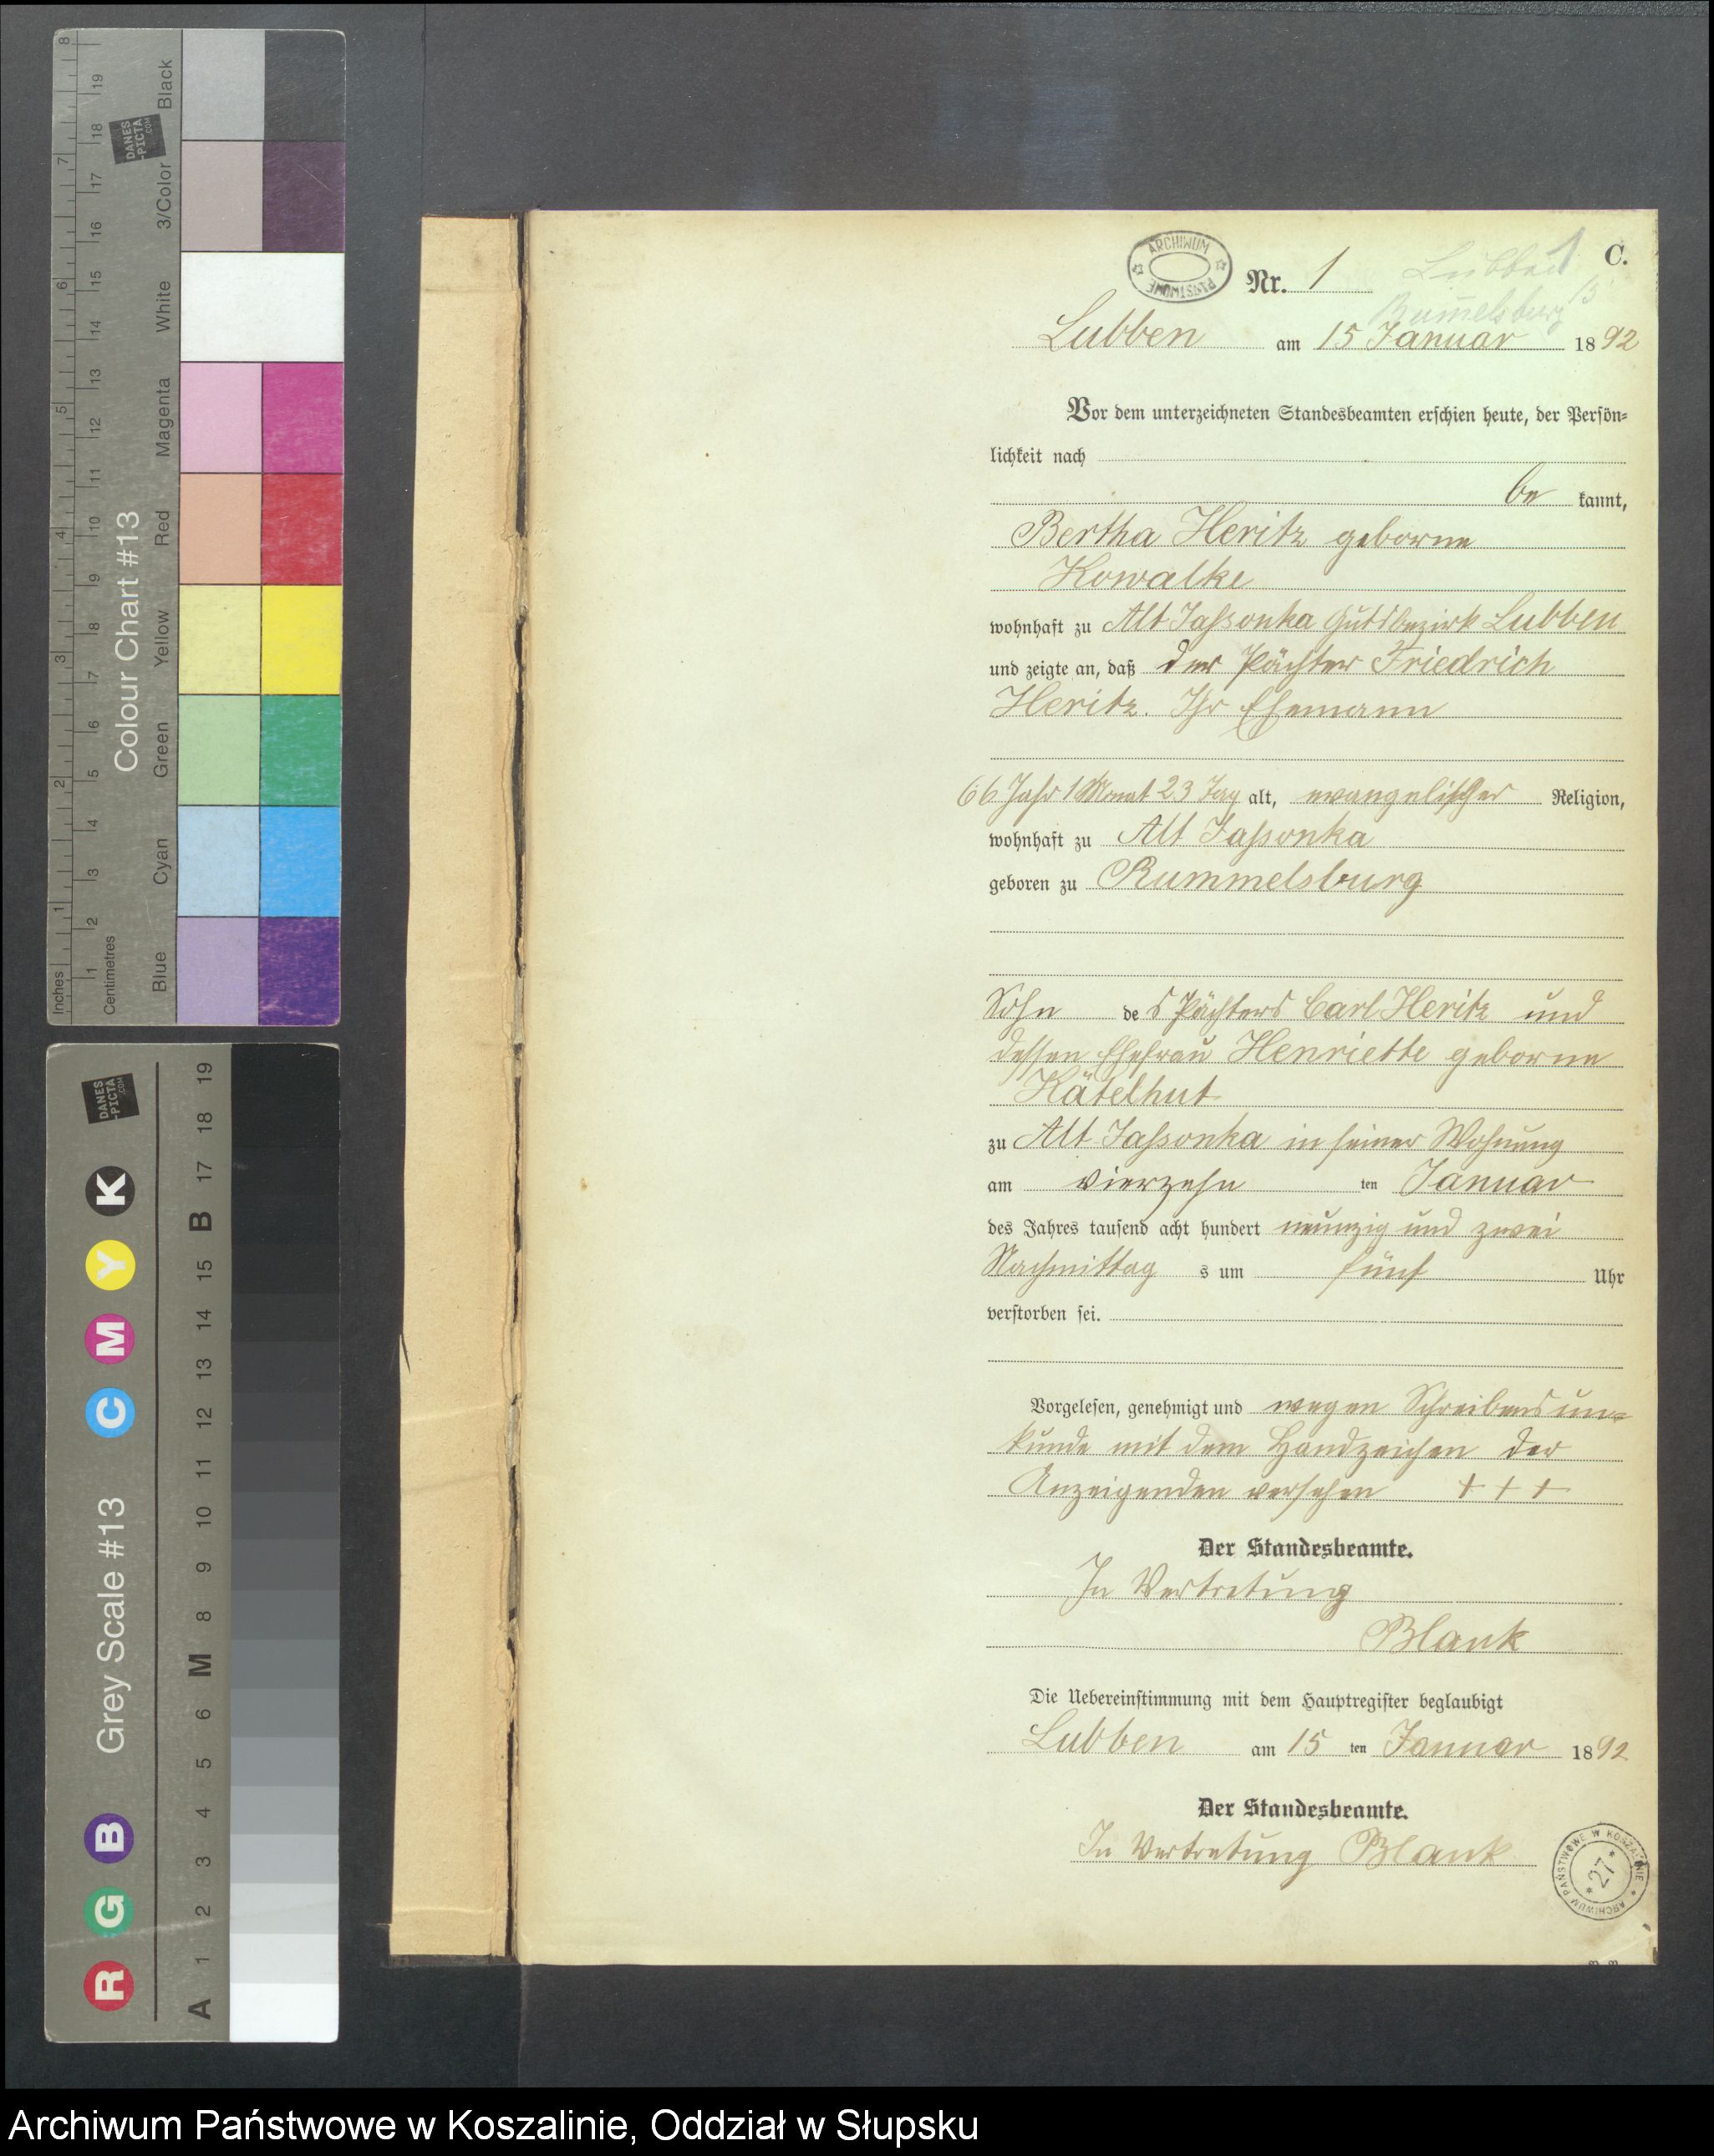 Inches 1 2 3 4 5 6 7 8
Centimetres 1 2 3 4 5 6 7 8 9 10 11 12 13 14 15 16 17 18 19
DANES
-PICTA
.COM
Colour Chart #13
Blue Cyan Green Yellow Red Magenta White 3/Color Black
Grey Scale #13
R G B C M Y K
DANES
-PICTA
.COM
A 1 2 3 4 5 6 M 8 9 10 11 12 13 14 15 B 17 18 19
ARCHIWUM PAŃSTWOWE
Nr. 1
Lubben 1
C.
Rummelsburg
Lubben am 15 Januar 1892
Vor dem unterzeichneten Standesbeamten erschien heute, der Persön-
lichkeit nach
be kannt,
Bertha Heritz geborne
Kowalke
wohnhaft zu Alt Jassonka Gutsbezirk Lubben
und zeigte an, daß der Pächter Friedrich
Heritz. Ihr Ehemann
66 Jahr 1 Monat 23 Tag alt, evangelischer Religion,
wohnhaft zu Alt Jassonka
geboren zu Rummelsburg
Sohn des Pächters Carl Heritz und
dessen Ehefrau Henriette geborne
Kätelhut
zu Alt Jassonka in seiner Wohnung
am vierzehn ten Januar
des Jahres tausend acht hundert neunzig und zwei
Nachmittag s um fünf Uhr
verstorben sei.
Vorgelesen, genehmigt und wegen Schreibensun-
kunde mit dem Handzeichen der
Anzeigenden versehen +++
Der Standesbeamte.
In Vertretung
Blank
Die Uebereinstimmung mit dem Hauptregister beglaubigt
Lubben am 15 ten Januar 1892
Der Standesbeamte.
In Vertretung Blank
ARCHIWUM PAŃSTWOWE W KOSZALINIE
*27*
Archiwum Państwowe w Koszalinie, Oddział w Słupsku